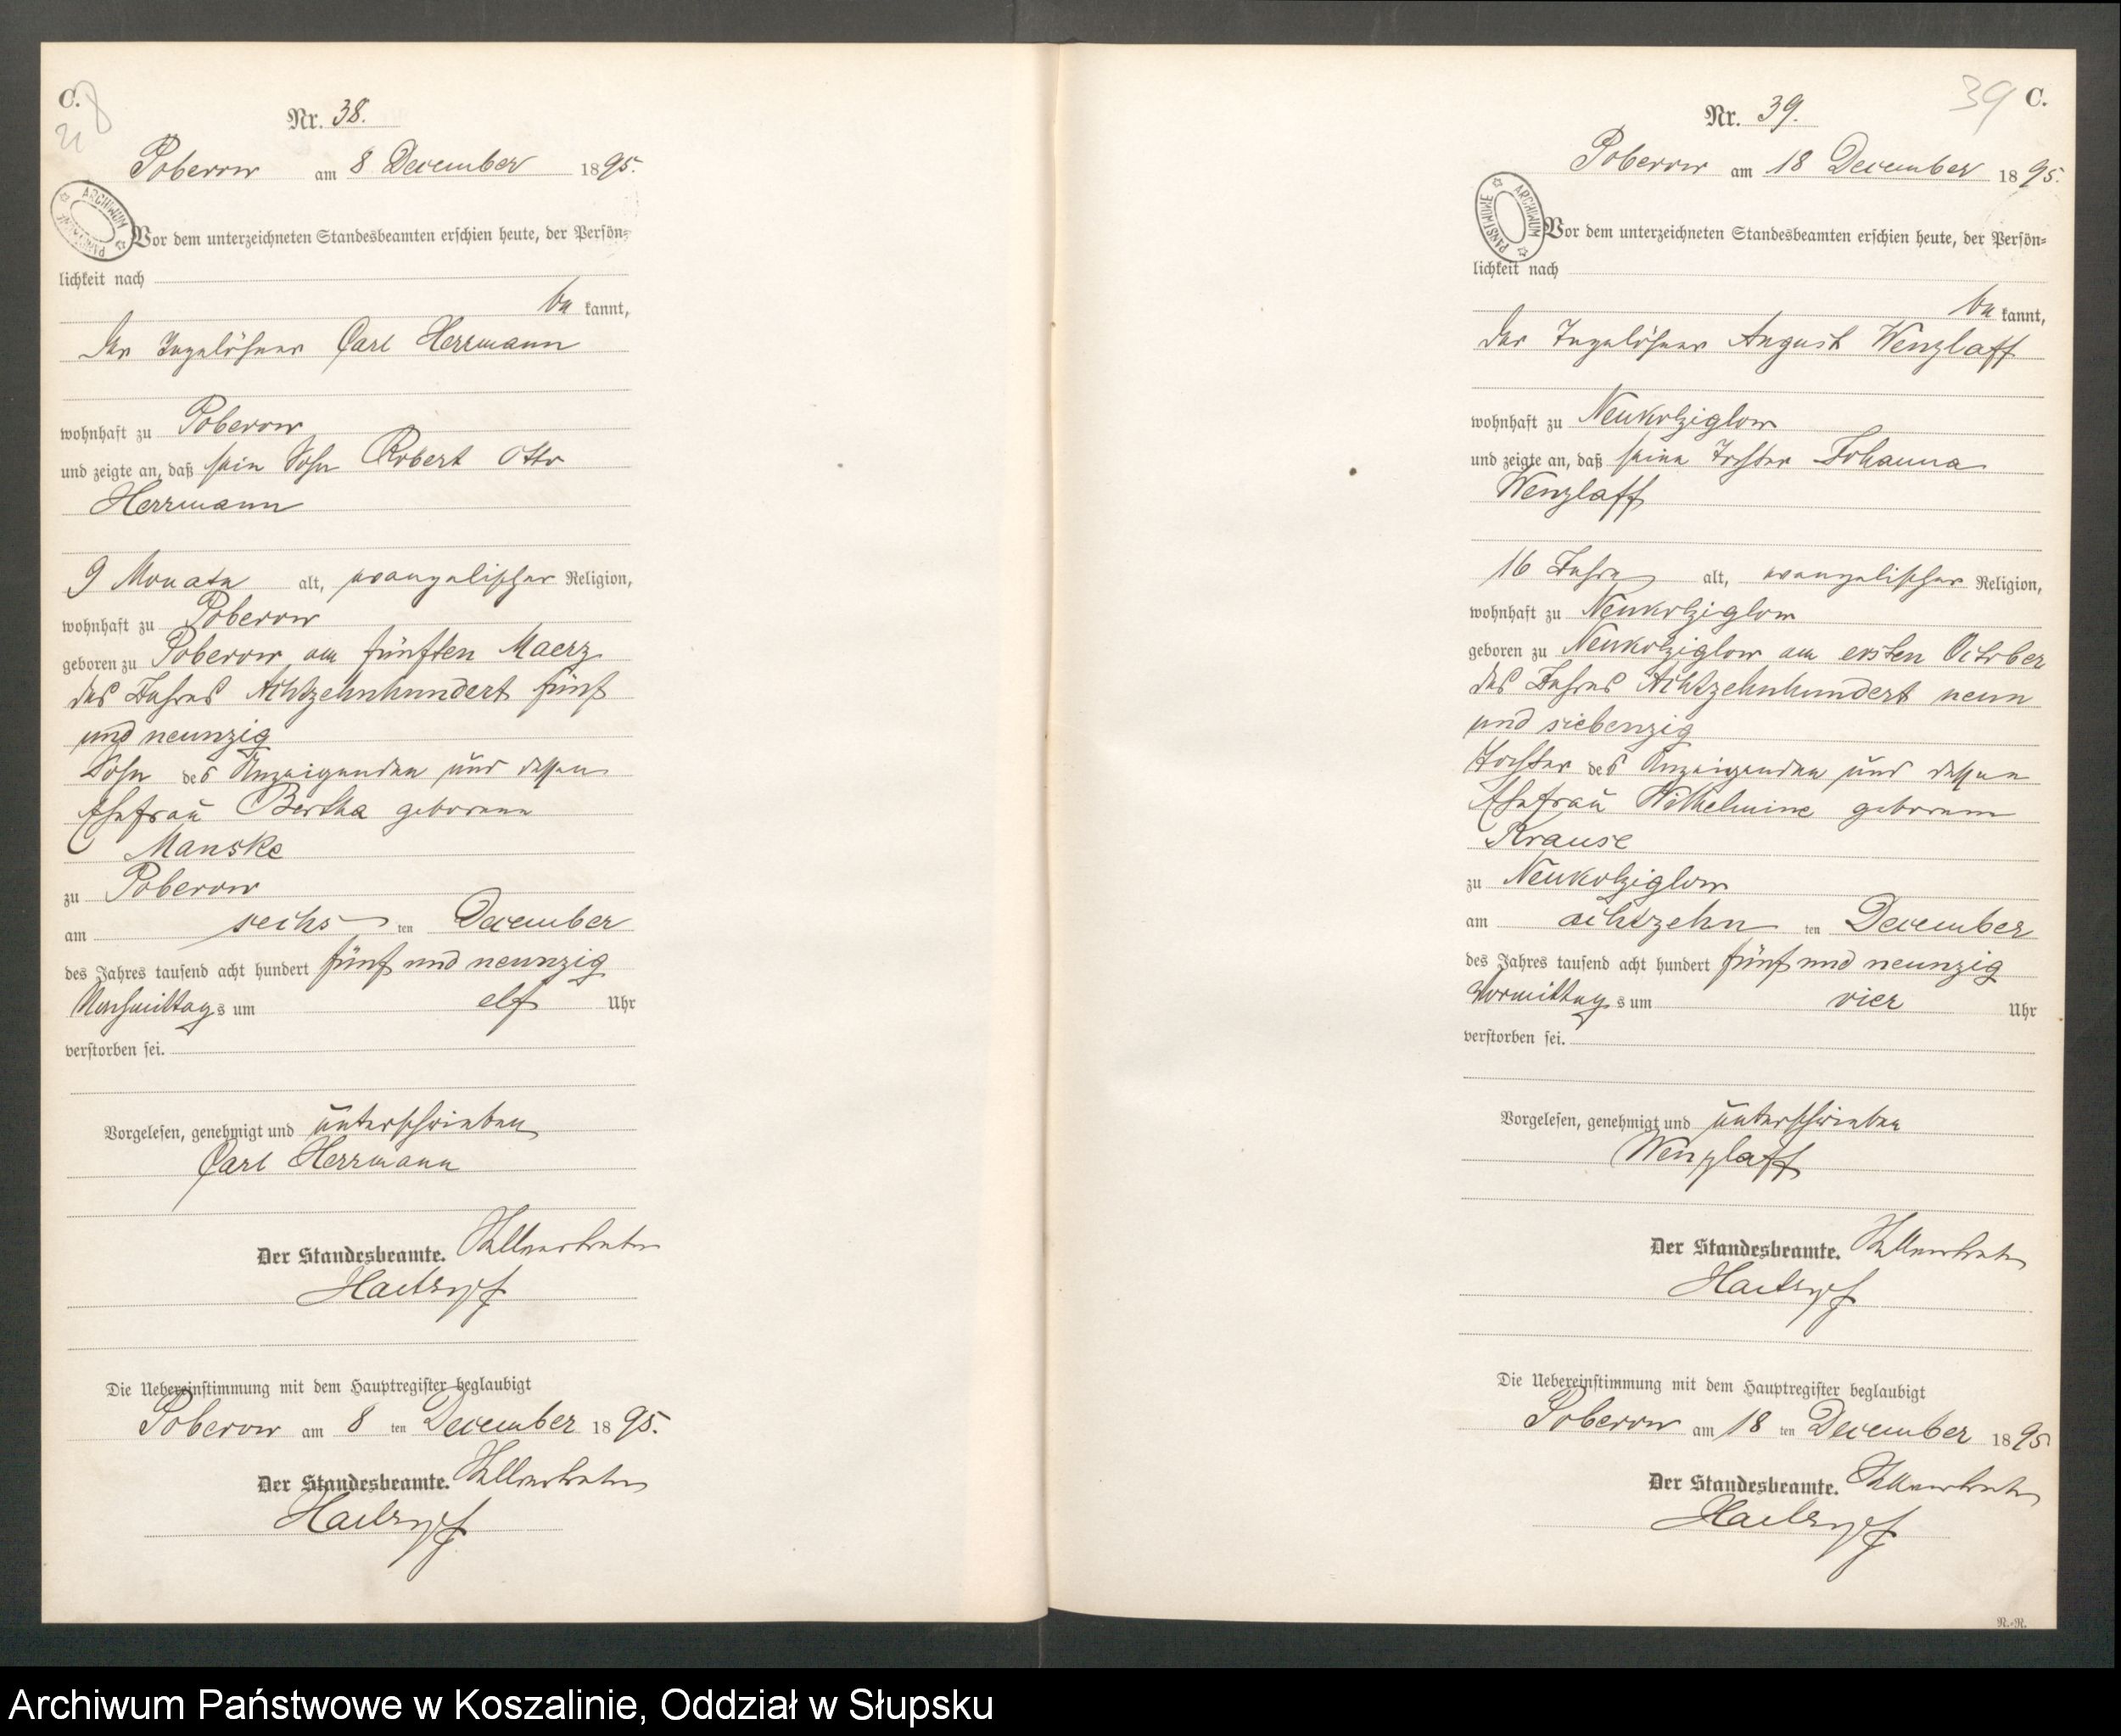 C.
Nr. 38.
Poberow am 8 December 1895.
ARCHIWUM PAŃSTWOWE
Vor dem unterzeichneten Standesbeamten erschien heute, der Persön=
lichkeit nach
be kannt,
der Tagelöhner Carl Herrmann
wohnhaft zu Poberow
und zeigte an, daß sein Sohn Robert Otto
Herrmann
9 Monate alt, evangelischer Religion,
wohnhaft zu Poberow
geboren zu Poberow am fünften Maerz
des Jahres Achtzehnhundert fünf
und neunzig
Sohn des Anzeigenden und dessen
Ehefrau Bertha geborene
Manske
zu Poberow
am sechs ten December
des Jahres tausend acht hundert fünf und neunzig
Nachmittags um elf Uhr
verstorben sei.
Vorgelesen, genehmigt und unterschrieben
Carl Herrmann
Der Standesbeamte.
Die Uebereinstimmung mit dem Hauptregister beglaubigt
Poberow am 8 ten December 1895.
Der Standesbeamte.
39 C.
Nr. 39.
Poberow am 18 December 1895.
ARCHIWUM PAŃSTWOWE
Vor dem unterzeichneten Standesbeamten erschien heute, der Persön=
lichkeit nach
be kannt,
der Tagelöhner August Wenzlaff
wohnhaft zu Neukolziglow
und zeigte an, daß seine Tochter Johanna
Wenzlaff
16 Jahre alt, evangelischer Religion,
wohnhaft zu Neukolziglow
geboren zu Neukolziglow am ersten October
des Jahres Achtzehnhundert neun
und siebenzig
Tochter des Anzeigenden und dessen
Ehefrau Wilhelmine geborene
Krause
zu Neukolziglow
am achtzehn ten December
des Jahres tausend acht hundert fünf und neunzig
Vormittags um vier Uhr
verstorben sei.
Vorgelesen, genehmigt und unterschrieben
Wenzlaff
Der Standesbeamte.
Die Uebereinstimmung mit dem Hauptregister beglaubigt
Poberow am 18 ten December 1895
Der Standesbeamte.
R.-R.
Archiwum Państwowe w Koszalinie, Oddział w Słupsku